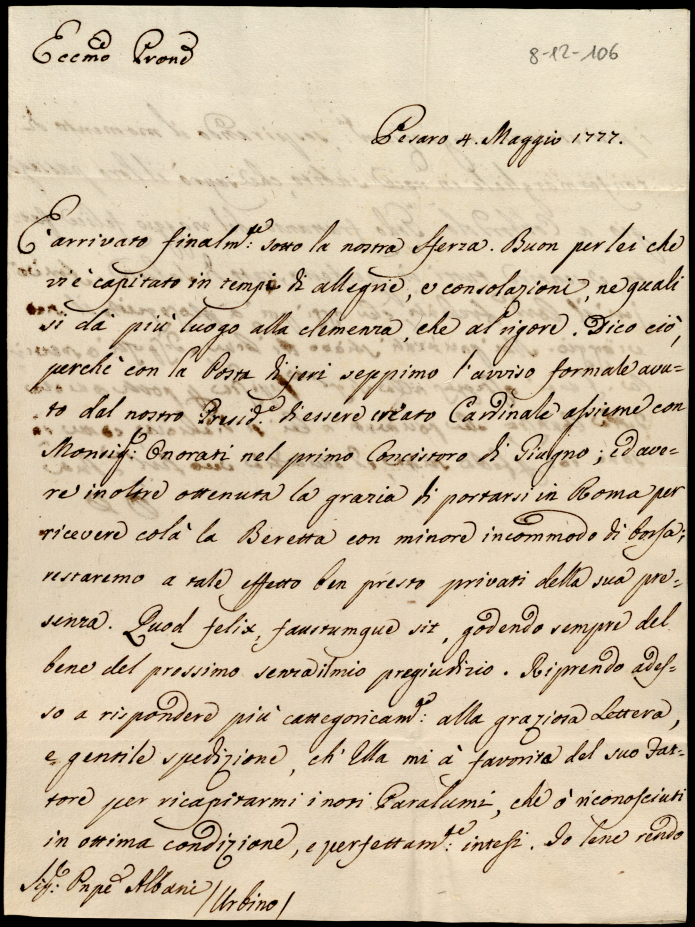 Eccmo Prone
8-12-106
Pesaro 4. Maggio 1777.
È arrivato finalm:te sotto la nostra sferza. Buon per lei che
vi è capitato in tempi di allegrie, e consolazioni, ne quali
si dà più luogo alla clemenza, che al rigore. Dico ciò,
perchè con la Posta di jeri seppimo l'avviso formale avu-
to dal nostro Presid:e d'essere creato Cardinale assieme con
Monsig:r Onorati nel primo Concistoro di Giugno; ed ave-
re inoltre ottenuta la grazia di portarsi in Roma per
ricevere colà la Beretta con minore incommodo di borsa;
restaremo a tale effetto ben presto privati della sua pre-
senza. Quod felix, faustumque sit, godendo sempre del
bene del prossimo senza il mio pregiudizio. Riprendo ades-
so a rispondere più cattegoricam:e alla graziosa Lettera,
e gentile spedizione, ch'Ella mi à favorita del suo Fat-
tore per ricapitarmi i noti Paralumi, che ò riconosciuti
in ottima condizione, e perfettam:te intesi. Io lene rendo
Sig:r Pnpe Albani /Urbino/